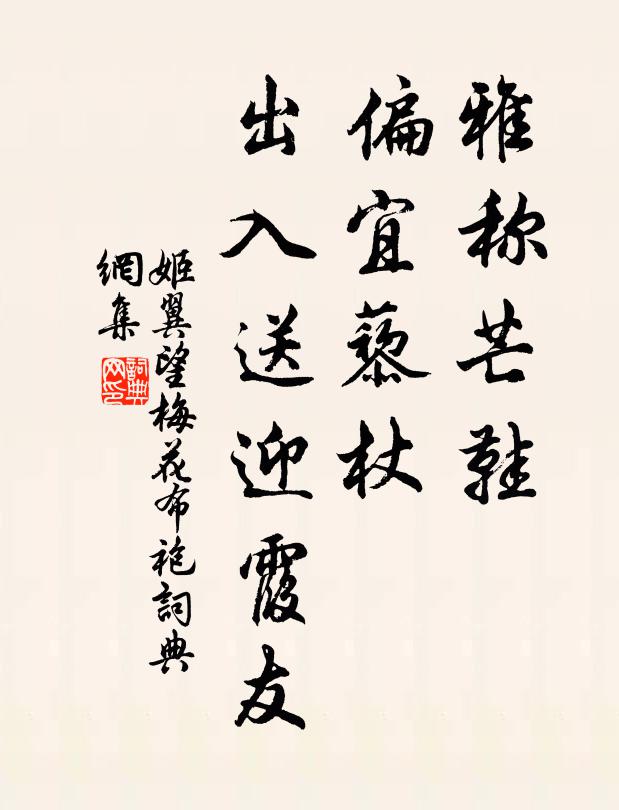 雅称芒鞋
偏宜藜杖
出入送迎霞友
姬翼望梅花布袍詞典
網集
詞典网印